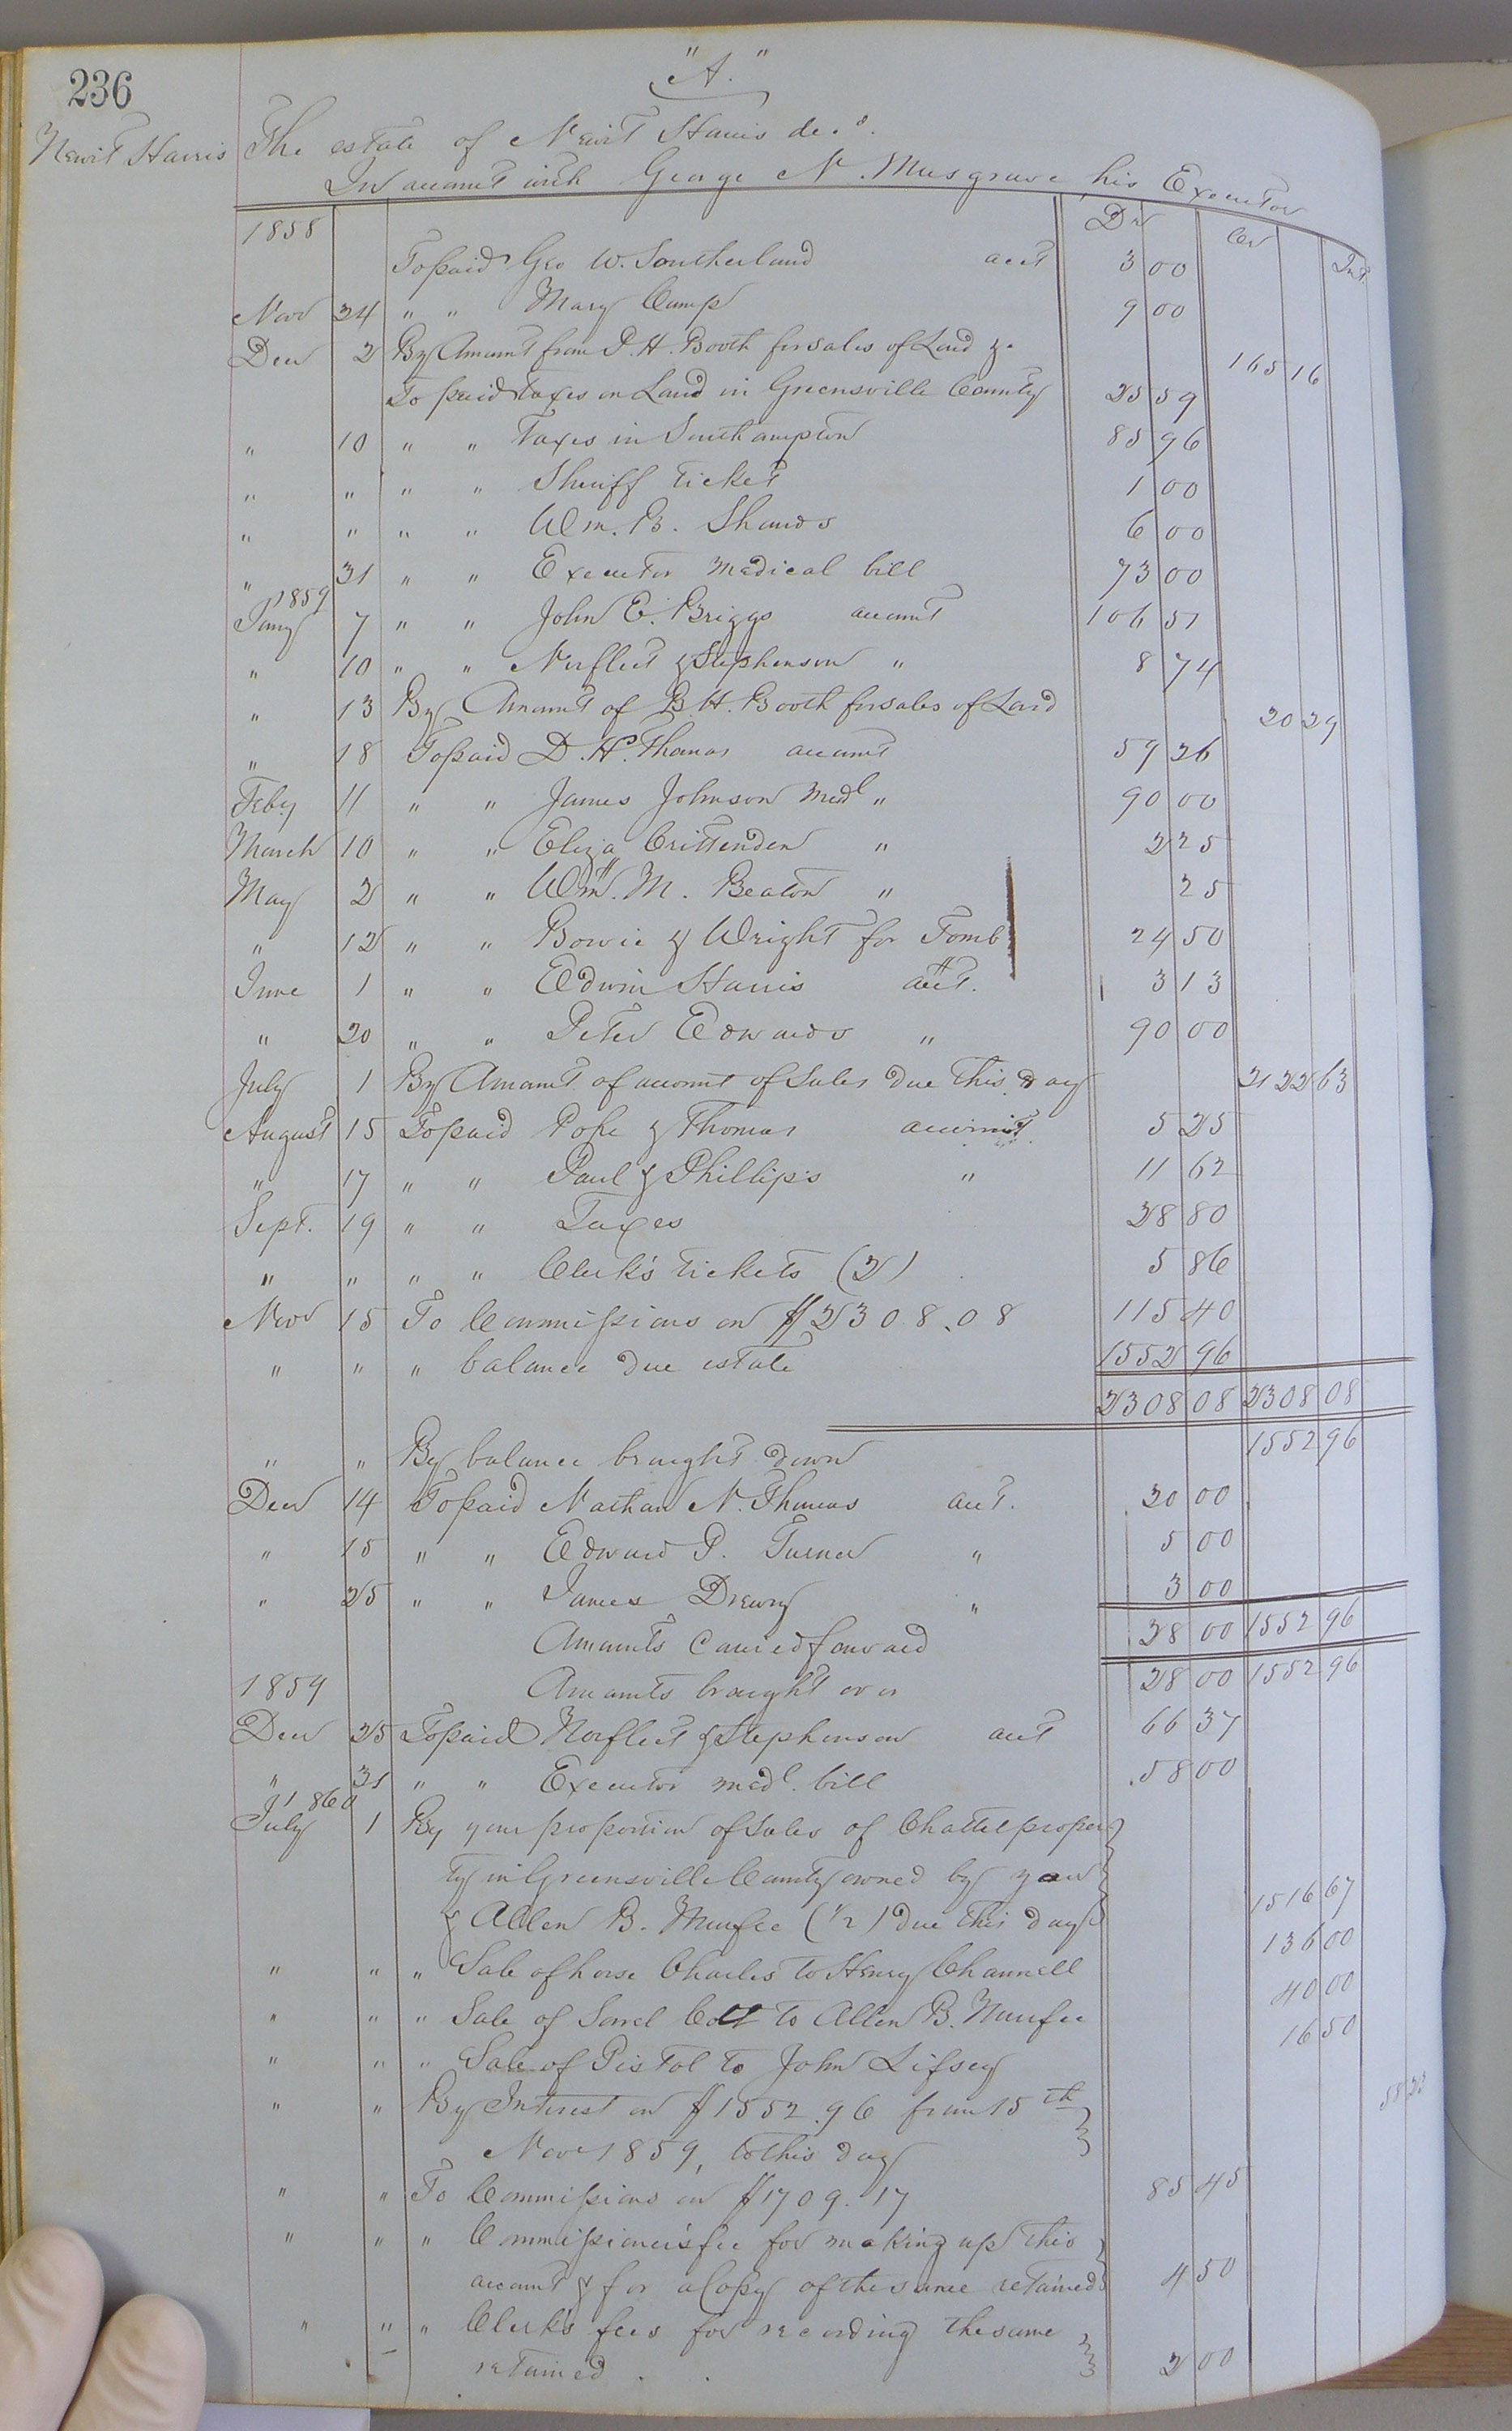 236
"A."
Newit Harris
The estate of Newit Harris dec.d.
In account with George N. Musgrave his Executor
1858 Dr Cr Int.
To paid Geo W. Southerland acct 3 00
Nov 24 " " Mary Camp 9 00
Dec 2 By Amount from P. H. Booth for sales of Land &c 165 16
To paid Taxes on Land in Greensville County 25 59
" 10 " " Taxes in Southampton 85 96
" " " " Sheriff ticket 1 00
" " " " Wm. B. Shands 6 00
" 31 " " Executor medical bill 73 00
1859
Jany 7 " " John E. Briggs account 106 51
" 10 " " Norfleet & Stephenson " 8 74
" 13 By Amount of B. H. Booth for sales of Land 20 29
" 18 To paid D. H. Thomas account 59 26
Feby 11 " " James Johnson Medl " 90 00
March 10 " " Eliza Crittenden " 2 25
May 2 " " Wm. M. Beaton " 25
" 12 " " Bowie & Wright for Tomb 24 50
June 1 " " Edwin Harris acct. 3 13
" 20 " " Peter Edwards " 90 00
July 1 By Amount of account of Sales due this day 2122 63
August 15 To paid Pope & Thomas account 5 25
" 17 " " Paul & Phillips " 11 62
Sept. 19 " " Taxes 28 80
" " " " Clerk's tickets (2) 5 86
Nov 15 To Commissions on $2308.08 115 40
" " " balance due estate 1552 96
2308 08 2308 08
" " By balance brought down 1552 96
Dec 14 To paid Nathan N. Thomas act. 20 00
" 15 " " Edward P. Turner " 5 00
" 25 " " James Drewry " 3 00
Amounts carried forward 28 00 1552 96
1859 Amounts brought over 28 00 1552 96
Dec 25 To paid Norfleet & Stephenson act 66 37
" 31 " " Executor medl. bill 58 00
1860
July 1 By your proportion of Sales of Chattel proper
ty in Greensville County owned by you
& Allen B. Munfee (1/2) due this day 1516 67
" " " Sale of horse Charles to Henry Channell 136 00
" " " Sale of Sorrel Colt to Allen B. Munfee 40 00
" " " Sale of Pistol to John Lifsey 16 50
" " By Interest on $1552.96 from 15th
Nov 1859, to this day 58 23
" " To Commissions on $1709.17 85 45
" " " Commissioner's fee for making up this
account & for a Copy of the same retained 4 50
" " " Clerk's fees for recording the same
retained . . 2 00